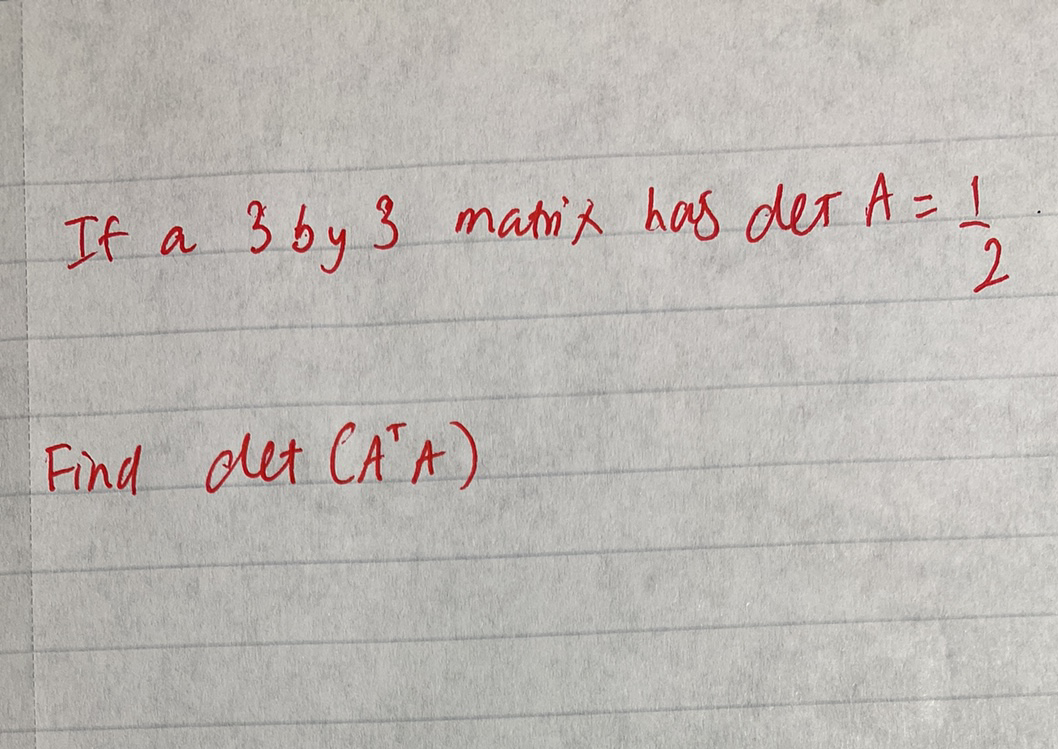 If a 3 by 3 matrix has det A = 1/2
Find det (AᵀA)